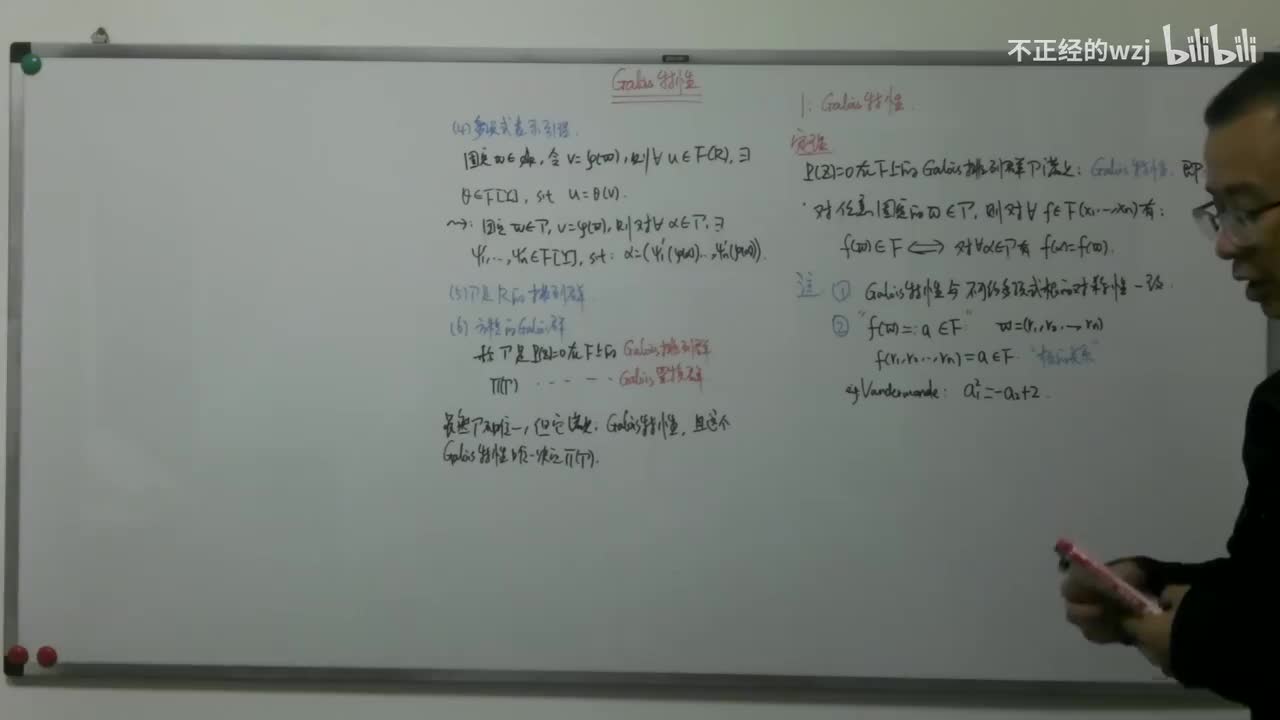 不正经的wzj bilibili
Galois 特性
(4) 多项式表示引理.
固定 ϖ∈ , 令 V=φ(ϖ), 则 ∀ u∈F(R), ∃
θ∈F[X], s.t. u=θ(V).
固定 ϖ∈Γ, V=φ(ϖ), 则对∀ α∈Γ, ∃
(5) Γ是R的排列群.
(6) 方程的Galois群
称Γ是P(Z)=0在F上的 Galois排列群
Π(Γ) ------ Galois置换群
Γ不唯一, 但它满足: Galois特性, 且这个
Galois特性唯一决定Π(Γ).
1. Galois特性.
定理
P(Z)=0在F上的Galois排列群Γ满足: Galois特性, 即
对任意固定的 ϖ∈Γ, 则对∀ f∈F(x₁,…,xₙ)有:
f(ϖ)∈F ⟺ 对∀α∈Γ有 f(α)=f(ϖ).
注 ① Galois特性与不可约多项式根的对称性一致.
② "f(ϖ)=: a ∈F" ϖ=(r₁,r₂,…,rₙ)
f(r₁,r₂,…,rₙ)=a∈F. "根的关系"
eg Vandermonde: a₁²=-a₂+2.